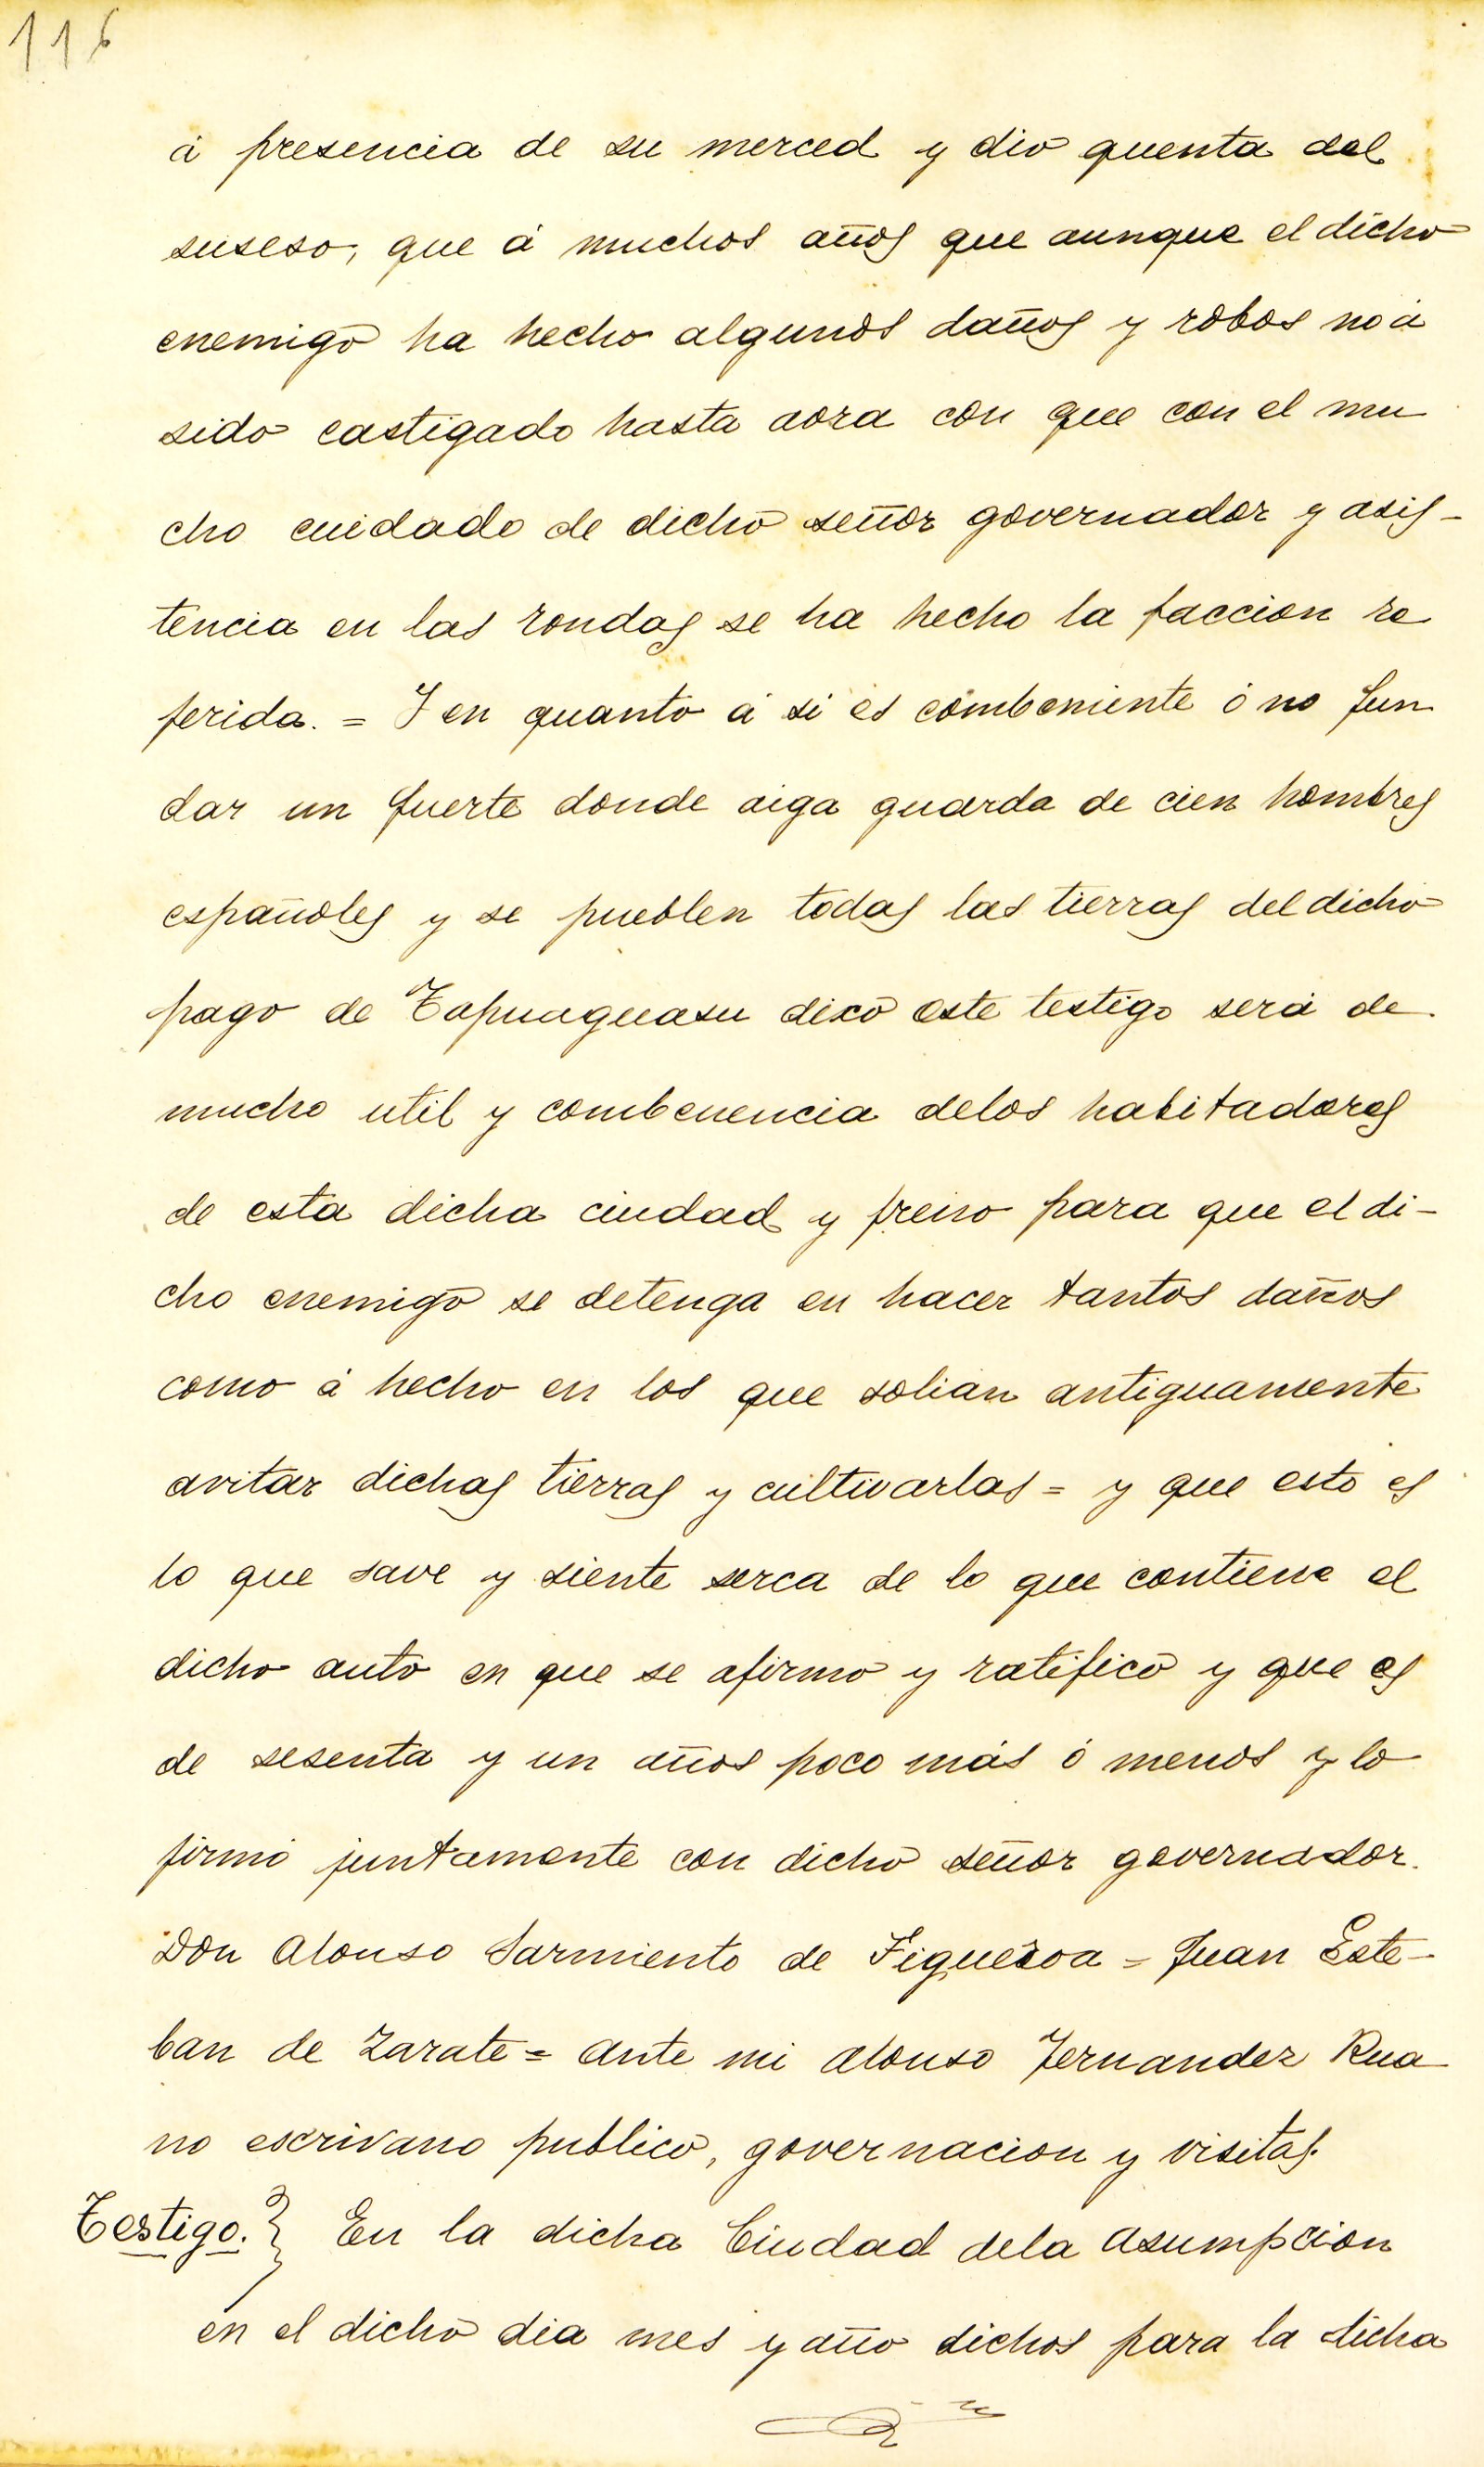 116
á presencia de su merced y dio quenta del
suseso, que á muchos años que aunque el dicho
enemigo ha hecho algunos daños y robos no á
sido castigado hasta aora con que con el mu
cho cuidado de dicho señor governador y asis-
tencia en las rondas se ha hecho la faccion re
ferida. = I en quanto á si es combeniente ó no fun
dar un fuerte donde aiga guarda de cien hombres
españoles y se pueblen todas las tierras del dicho
pago de Tapuaguasu dixo este testigo será de
mucho util y combenencia delos habitadores
de esta dicha ciudad y freno para que el di-
cho enemigo se detenga en hacer tantos daños
como á hecho en los que solian antiguamente
avitar dichas tierras y cultivarlas = y que esto es
lo que save y siente serca de lo que contiene el
dicho auto en que se afirmo y ratifico y que es
de sesenta y un años poco más ó menos y lo
firmó juntamente con dicho señor governador.
Don Alonso Sarmiento de Figueroa = Juan Este-
ban de Zarate = ante mi Alonso Fernandez Rua
no escrivano publico, governacion y visitas.
Testigo. } En la dicha Ciudad dela Asumpcion
en el dicho dia mes y año dichos para la dicha